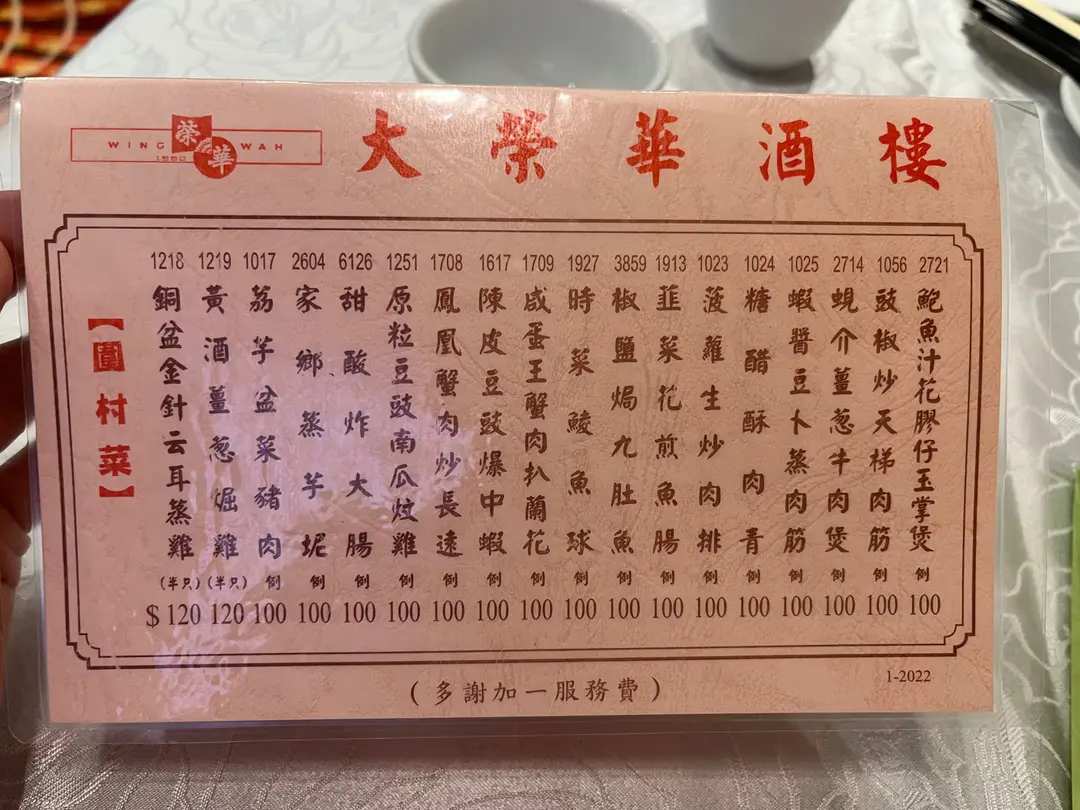 WING 榮華 WAH
大榮華酒樓
【圍村菜】
1218 銅盆金針云耳蒸雞 (半只) $120
1219 黃酒薑葱焗雞 (半只) 120
1017 荔芋盆菜豬肉 例 100
2604 家鄉蒸芋坭 例 100
6126 甜酸炸大腸 例 100
1251 原粒豆豉南瓜炆雞 例 100
1708 鳳凰蟹肉炒長遠 例 100
1617 陳皮豆豉爆中蝦 例 100
1709 咸蛋王蟹肉扒蘭花 例 100
1927 時菜鯪魚球 例 100
3859 椒鹽焗九肚魚 例 100
1913 韮菜花煎魚腸 例 100
1023 菠蘿生炒肉排 例 100
1024 糖醋酥肉青 例 100
1025 蝦醬豆卜蒸肉筋 例 100
2714 蜆介薑葱牛肉煲 例 100
1056 豉椒炒天梯肉筋 例 100
2721 鮑魚汁花膠仔玉掌煲 例 100
(多謝加一服務費)
1-2022